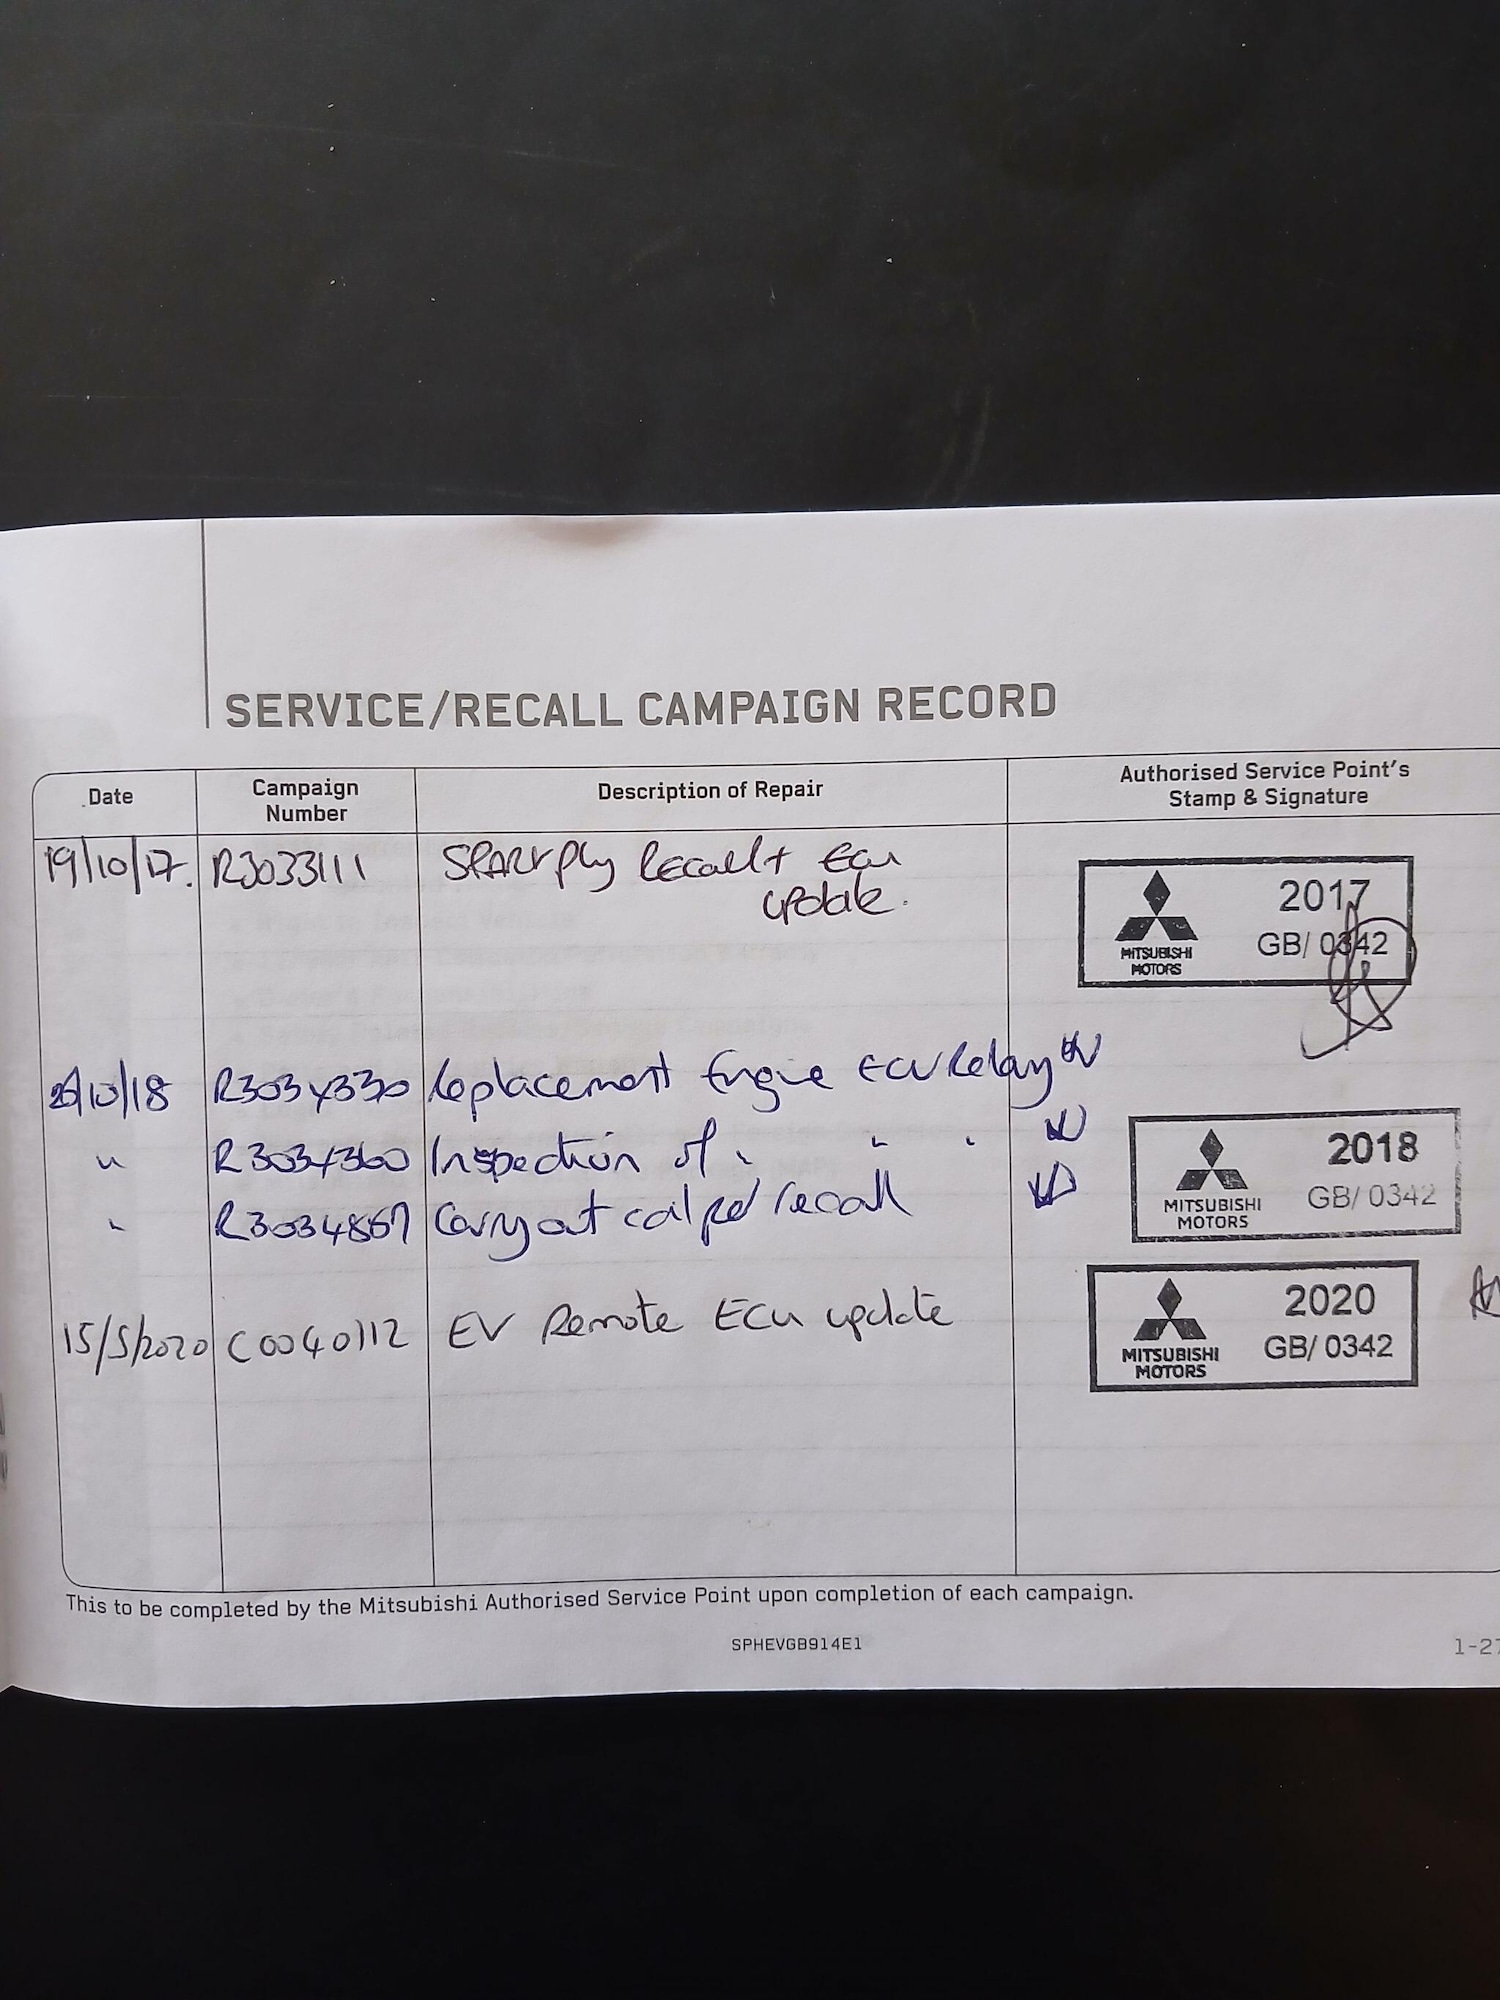 SERVICE/RECALL CAMPAIGN RECORD
Date
Campaign
Number
Description of Repair
Authorised Service Point's
Stamp & Signature
19/10/17. R3033111 Recall + Ecu
update.
2017
GB/ 0342
MITSUBISHI
MOTORS
/10/18 R3034330 Replacement Engine ECU Relay
" R3034360 Inspection of " " "
" R3034867 Carry out caliper recall
2018
GB/ 0342
MITSUBISHI
MOTORS
15/5/2020 C0040112 EV Remote ECU update
2020
GB/ 0342
MITSUBISHI
MOTORS
This to be completed by the Mitsubishi Authorised Service Point upon completion of each campaign.
SPHEVGB914E1
1-27